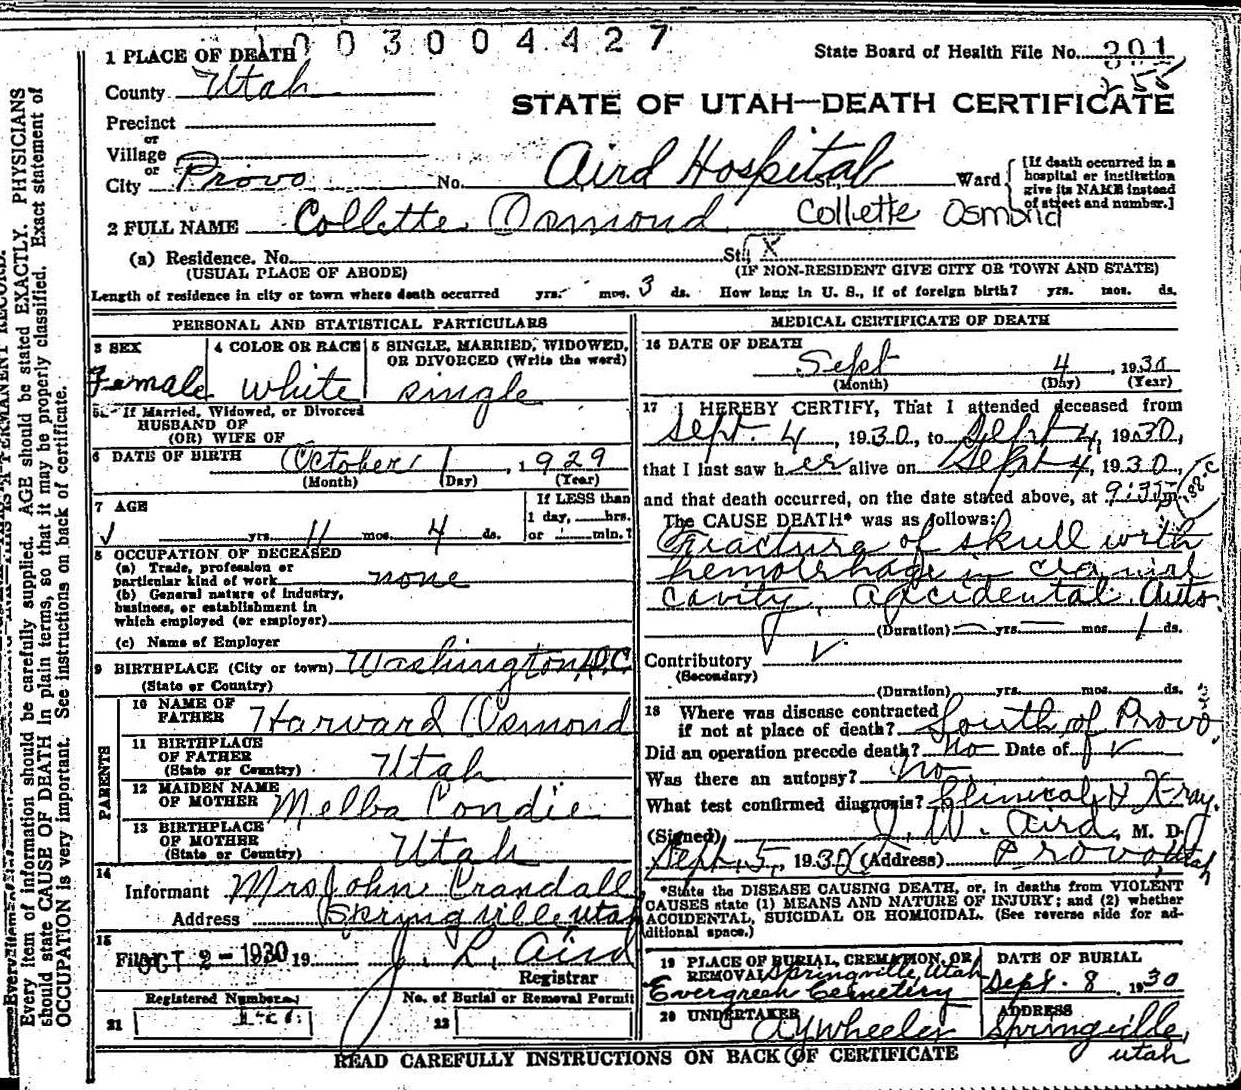 1003004427
1 PLACE OF DEATH
State Board of Health File No. 301
County Utah
255
STATE OF UTAH—DEATH CERTIFICATE
Precinct
or
Village
or
City Provo No. Aird Hospital St., Ward
[If death occurred in a hospital or institution give its NAME instead of street and number.]
2 FULL NAME Collette Osmond Collette Osmond
(a) Residence. No. St. X
(USUAL PLACE OF ABODE) (IF NON-RESIDENT GIVE CITY OR TOWN AND STATE)
Length of residence in city or town where death occurred yrs. mos. 3 ds. How long in U. S., if of foreign birth? yrs. mos. ds.
PERSONAL AND STATISTICAL PARTICULARS
3 SEX 4 COLOR OR RACE 5 SINGLE, MARRIED, WIDOWED,
OR DIVORCED (Write the word)
Female white single
5a If Married, Widowed, or Divorced
HUSBAND OF
(OR) WIFE OF
6 DATE OF BIRTH October 1, 1929
(Month) (Day) (Year)
7 AGE
If LESS than
1 day, hrs.
yrs. 11 mos. 4 ds. or min.?
8 OCCUPATION OF DECEASED
(a) Trade, profession or
particular kind of work none
(b) General nature of industry,
business, or establishment in
which employed (or employer)
(c) Name of Employer
9 BIRTHPLACE (City or town) Washington, D.C.
(State or Country)
PARENTS
10 NAME OF
FATHER Harvard Osmond
11 BIRTHPLACE
OF FATHER
(State or Country) Utah
12 MAIDEN NAME
OF MOTHER Melba Condie
13 BIRTHPLACE
OF MOTHER
(State or Country) Utah
14
Informant Mrs John Crandall
Address Springville Utah
15
Filed OCT 2 - 1930 19 J. L. Aird
Registrar
Registered Number No. of Burial or Removal Permit
21 22
MEDICAL CERTIFICATE OF DEATH
16 DATE OF DEATH
Sept 4, 1930
(Month) (Day) (Year)
17 I HEREBY CERTIFY, That I attended deceased from
Sept. 4, 1930, to Sept 4, 1930,
that I last saw her alive on Sept 4, 1930,
and that death occurred, on the date stated above, at
The CAUSE DEATH* was as follows:
Fracture of skull with
hemorrhage in cranial
cavity. accidental. Auto.
(Duration) yrs. mos. 1 ds.
Contributory
(Secondary)
(Duration) yrs. mos. ds.
18 Where was disease contracted
if not at place of death? South of Provo
Did an operation precede death? No Date of
Was there an autopsy? No
What test confirmed diagnosis? Clinical & X-ray.
(Signed) J. W. Aird, M. D.
Sept. 5, 1930 (Address) Provo, Utah
*State the DISEASE CAUSING DEATH, or, in deaths from VIOLENT
CAUSES state (1) MEANS AND NATURE OF INJURY; and (2) whether
ACCIDENTAL, SUICIDAL OR HOMICIDAL. (See reverse side for ad-
ditional space.)
19 PLACE OF BURIAL, CREMATION, OR
REMOVAL Springville, Utah
Evergreen Cemetery
DATE OF BURIAL
Sept. 8 1930
20 UNDERTAKER
A Y Wheeler
ADDRESS
Springville,
Utah
READ CAREFULLY INSTRUCTIONS ON BACK OF CERTIFICATE
Every item of information should be carefully supplied. AGE should be stated EXACTLY. PHYSICIANS
should state CAUSE OF DEATH in plain terms, so that it may be properly classified. Exact statement of
OCCUPATION is very important. See instructions on back of certificate.